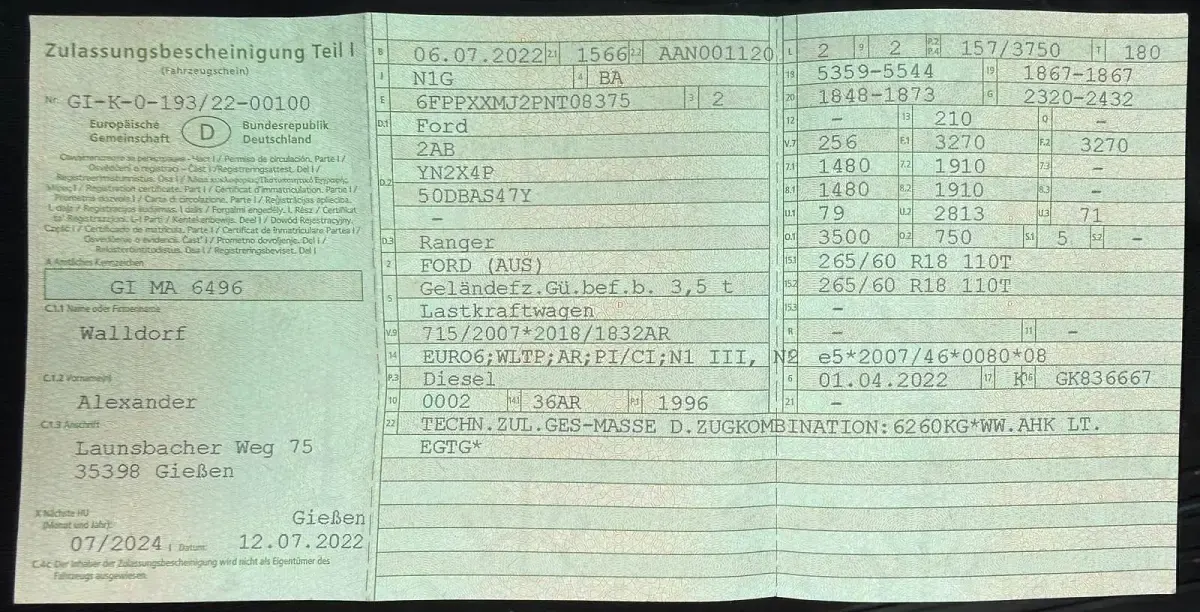 Zulassungsbescheinigung Teil I
(Fahrzeugschein)
Nr. GI-K-0-193/22-00100
Europäische Gemeinschaft D Bundesrepublik Deutschland
A Amtliches Kennzeichen
GI MA 6496
C.1.1 Name oder Firmenname
Walldorf
C.1.2 Vorname(n)
Alexander
C.1.3 Anschrift
Launsbacher Weg 75
35398 Gießen
X Nächste HU
(Monat und Jahr):
Gießen
07/2024 I Datum: 12.07.2022
C.4c Der Inhaber der Zulassungsbescheinigung wird nicht als Eigentümer des
Fahrzeugs ausgewiesen.
B 06.07.2022 2.1 1566 2.2 AAN001120
J N1G 4 BA
E 6FPPXXMJ2PNT08375 3 2
D.1 Ford
2AB
D.2 YN2X4P
50DBAS47Y
–
D.3 Ranger
2 FORD (AUS)
5 Geländefz.Gü.bef.b. 3,5 t
Lastkraftwagen
V.9 715/2007*2018/1832AR
14 EURO6;WLTP;AR;PI/CI;N1 III, N2
P.3 Diesel
10 0002 14.1 36AR P.1 1996
22 TECHN.ZUL.GES-MASSE D.ZUGKOMBINATION:6260KG*WW.AHK LT.
EGTG*
L 2 9 2 P.2 P.4 157/3750 T 180
18 5359-5544 19 1867-1867
20 1848-1873 G 2320-2432
12 – 13 210 Q –
V.7 256 F.1 3270 F.2 3270
7.1 1480 7.2 1910 7.3 –
8.1 1480 8.2 1910 8.3 –
U.1 79 U.2 2813 U.3 71
O.1 3500 O.2 750 S.1 5 S.2 –
15.1 265/60 R18 110T
15.2 265/60 R18 110T
15.3 –
R – 11 –
e5*2007/46*0080*08
6 01.04.2022 17 K 16 GK836667
21 –